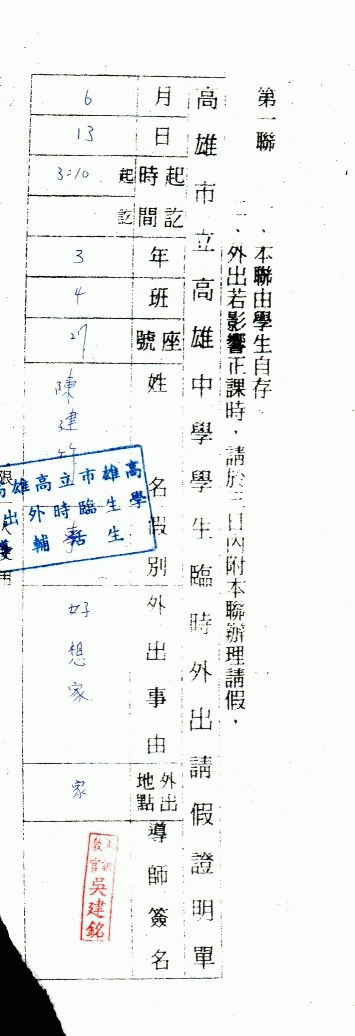 第一聯
一、本聯由學生自存
二、外出若影響正課時，請於三日內附本聯辦理請假，
高雄市立高雄中學學生臨時外出請假證明單
月 日 起訖時間 年 班 座號 姓名 假別 外出事由 外出地點 導師簽名
6
13
3:10 起
訖
3
4
27
陳建
事
好想家
家
高雄市立高雄
學生臨時外出
生 輔
教官 吳建銘